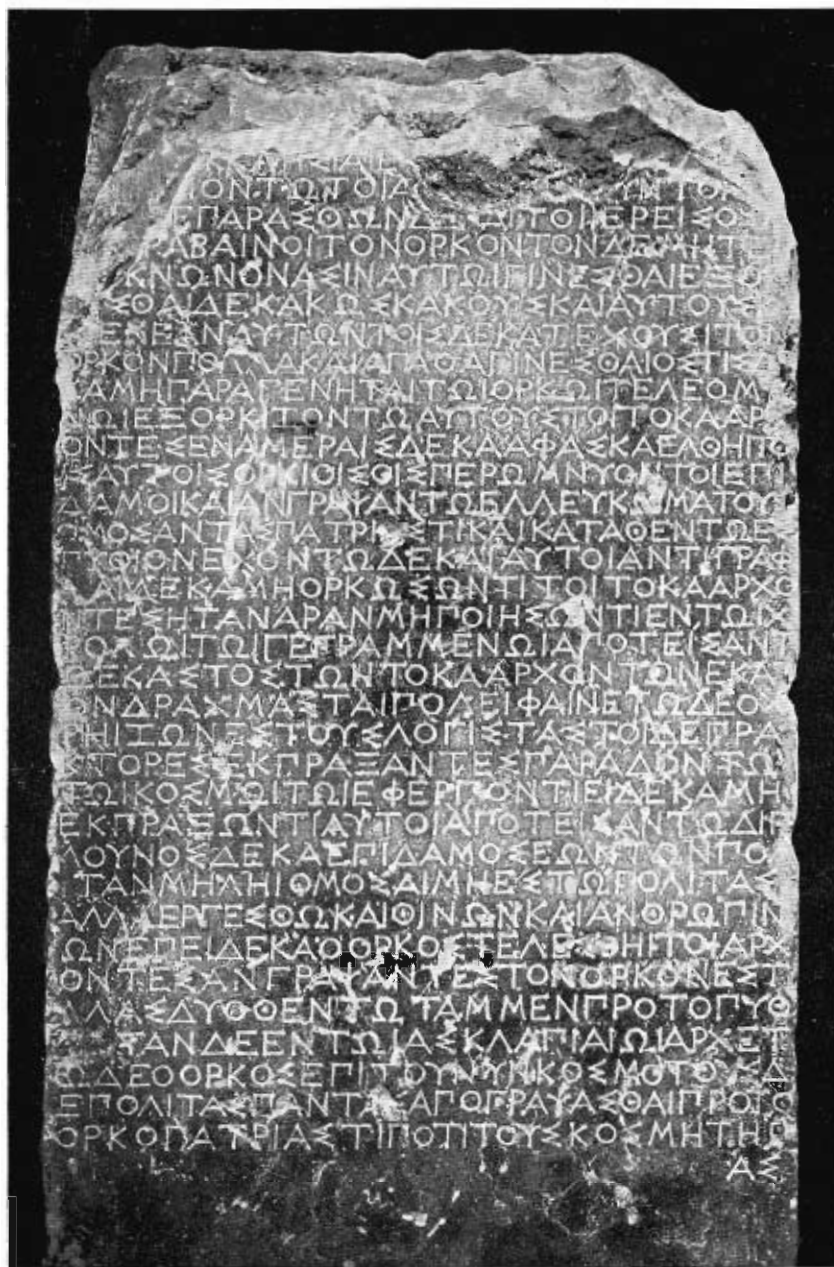 ΟΝΤΩ ΤΟΙ
ΕΠΑΡΑΣΘΩΝ ΤΟΙ ΙΕΡΕΙΣ
ΡΑΒΑΙΝΟΙ ΤΟΝ ΟΡΚΟΝ ΤΟΝΔΕ ΜΗΤΕ
ΚΝΩΝ ΟΝΑΣΙΝ ΑΥΤΩΙ ΓΙΝΕΣΘΑΙ ΕΞΟ
ΣΘΑΙ ΔΕ ΚΑΚΩΣ ΚΑΚΟΥΣ ΚΑΙ ΑΥΤΟΥΣ
ΑΥΤΩΝ ΤΟΙΣ ΔΕ ΚΑΤΕΧΟΥΣΙ ΤΟΝ
ΟΡΚΟΝ ΠΟΛΛΑ ΚΑΙ ΑΓΑΘΑ ΓΙΝΕΣΘΑΙ ΟΣΤΙΣ Δ
ΚΑ ΜΗ ΠΑΡΑΓΕΝΗΤΑΙ ΤΩΙ ΟΡΚΩΙ ΤΕΛΕΟΜ
ΝΩΙ ΕΞΟΡΚΙΤΟΝΤΩ ΑΥΤΟΥΣ ΤΟΙ ΤΟΚΑ ΑΡ
ΟΝΤΕΣ ΕΝ ΑΜΕΡΑΙΣ ΔΕΚΑ ΑΦ ΑΣ ΚΑ ΕΛΘΗΙ ΠΟ
Τ ΑΥΤΟΙΣ ΟΡΚΙΟΙΣ ΟΙΣΠΕΡ ΩΜΝΥΟΝ ΤΟΙ ΕΠΙ
ΔΑΜΟΙ ΚΑΙ ΑΝΓΡΑΨΑΝΤΩ ΕΛ ΛΕΥΚΩΜΑ ΤΟΥΣ
ΟΜΟΣΑΝΤΑΣ ΠΑΤΡΙΑΣΤΙ ΚΑΙ ΚΑΤΑΘΕΝΤΩ Ε
ΠΥΘΙΟΝ ΕΧΟΝΤΩ ΔΕ ΚΑΙ ΑΥΤΟΙ ΑΝΤΙΓΡΑΦ
ΑΙ ΔΕ ΚΑ ΜΗ ΟΡΚΩΣΩΝΤΙ ΤΟΙ ΤΟΚΑ ΑΡΧΟ
ΝΤΕΣ Η ΤΑΝ ΑΡΑΝ ΜΗ ΠΟΙΗΣΩΝΤΙ ΕΝ ΤΩΙ Χ
ΡΟΝΩΙ ΤΩΙ ΓΕΓΡΑΜΜΕΝΩΙ ΑΠΟΤΕΙΣΑΝΤ
ΕΚΑΣΤΟΣ ΤΩΝ ΤΟΚΑ ΑΡΧΟΝΤΩΝ ΕΚΑ
ΟΝ ΔΡΑΧΜΑΣ ΤΑΙ ΠΟΛΕΙ ΦΑΙΝΕΤΩ ΔΕ Ο Χ
ΡΗΙΖΩΝ ΕΣ ΤΟΥΣ ΛΟΓΙΣΤΑΣ ΤΟΙ ΔΕ ΠΡΑ
ΚΤΟΡΕΣ ΕΚΠΡΑΞΑΝΤΕΣ ΠΑΡΑΔΟΝΤΩ
ΤΩΙ ΚΟΣΜΩΙ ΤΩΙ ΕΦΕΡΠΟΝΤΙ ΕΙ ΔΕ ΚΑ ΜΗ
ΕΚΠΡΑΞΩΝΤΙ ΑΥΤΟΙ ΑΠΟΤΕΙΣΑΝΤΩ ΔΙΠ
ΛΟΥΝ ΟΣ ΔΕ ΚΑ ΕΠΙΔΑΜΟΣ ΕΩΝ ΤΩΝ ΠΟ
ΛΙΤΑΝ ΜΗ ΛΗΙ ΟΜΟΣΑΙ ΜΗ ΕΣΤΩ ΠΟΛΙΤΑΣ
ΑΛΛΑ ΕΡΓΕΣΘΩ ΚΑΙ ΘΙΝΩΝ ΚΑΙ ΑΝΘΡΩΠΙΝ
ΩΝ ΕΠΕΙ ΔΕ ΚΑ Ο ΟΡΚΟΣ ΤΕΛΕΣΘΗΙ ΤΟΙ ΑΡΧ
ΟΝΤΕΣ ΑΝΓΡΑΨΑΝΤΕΣ ΤΟΝ ΟΡΚΟΝ ΕΣ Τ
ΑΛΛΑΣ ΔΥΟ ΘΕΝΤΩ ΤΑΜ ΜΕΝ ΠΡΟ ΤΟ ΠΥΘ
ΤΑΝ ΔΕ ΕΝ ΤΩΙ ΑΣΚΛΑΠΙΑΙΩΙ ΑΡΧΕΤ
Ω ΔΕ Ο ΟΡΚΟΣ ΕΠΙ ΤΟΥ ΝΥΝ ΚΟΣΜΟΥ
Ε ΠΟΛΙΤΑΣ ΠΑΝΤΑΣ ΑΠΟΓΡΑΨΑΣΘΑΙ ΠΡΟ Τ
ΟΡΚΟ ΠΑΤΡΙΑΣΤΙ ΠΟΤΙ ΤΟΥΣ ΚΟΣΜΗΤΗ